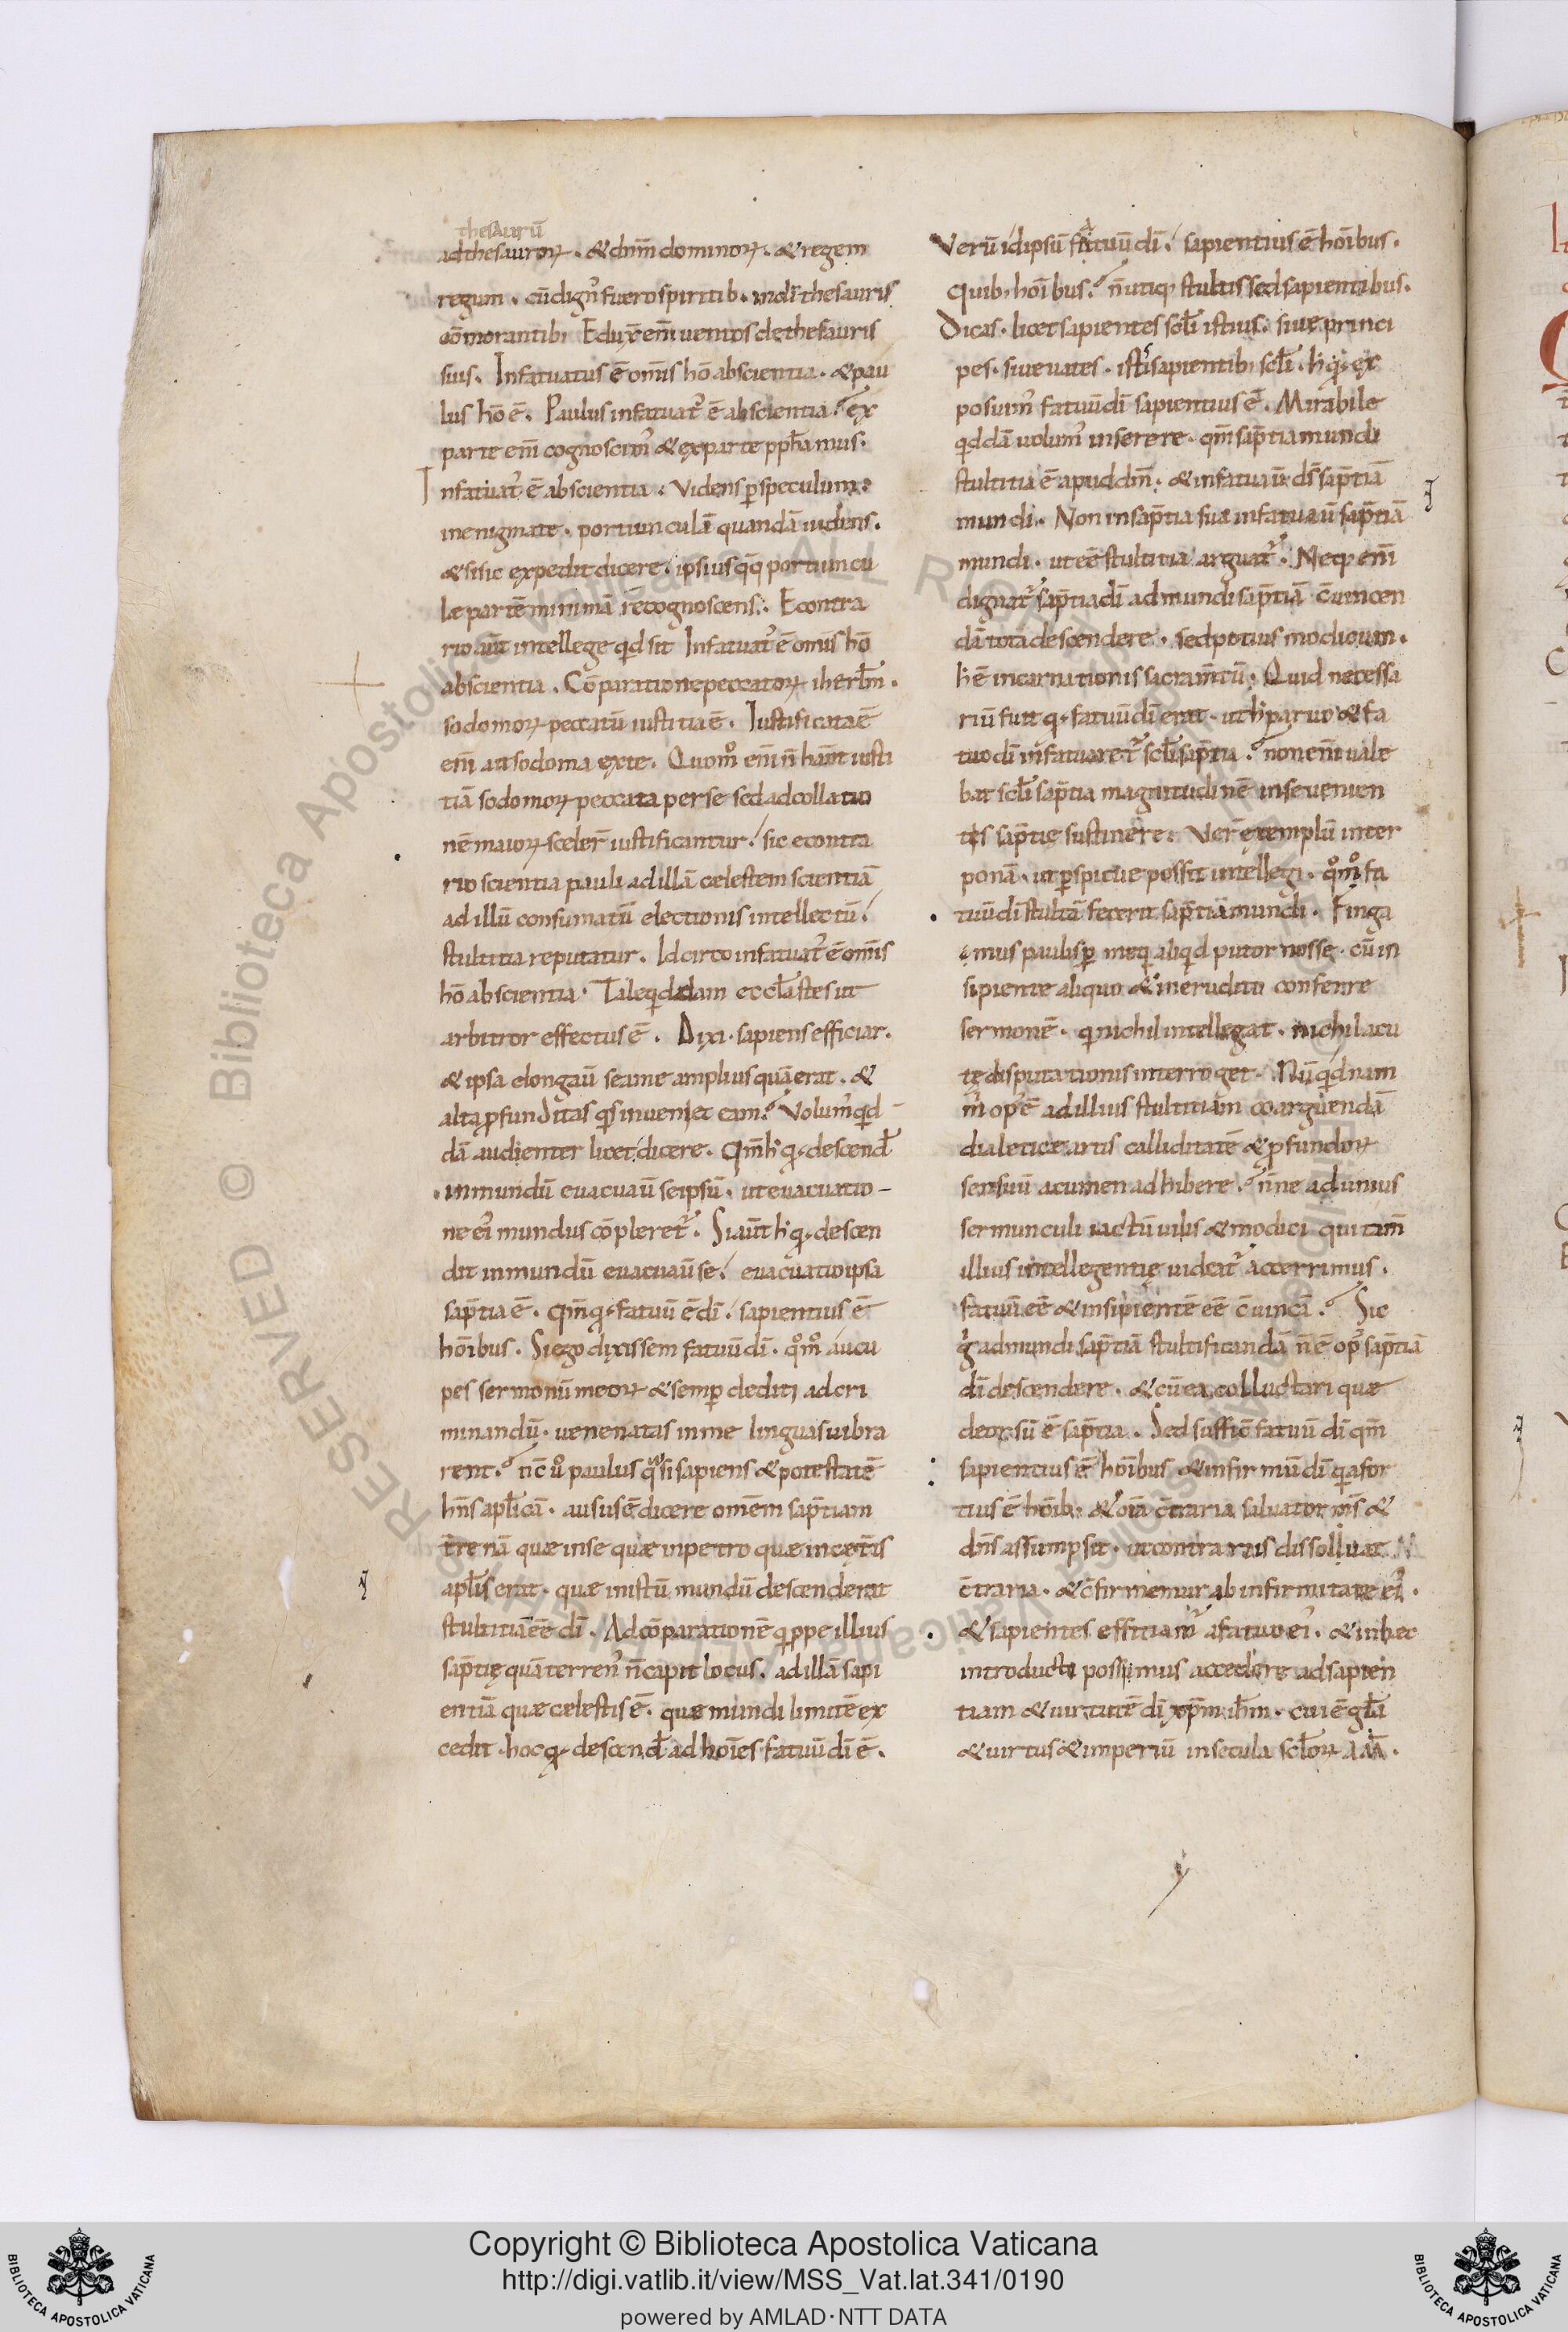 thesaurū
adthesauroꝝ. &dnm̄ dominoꝝ. & regem
regum. cū dign᾽ fuero spiritib. indī thesauris
cōmorantib; Eduxit em̄ ventos dethesauris
suis. Infatuatus ē omīs hō abscientia. & pau
lus hō ē. Paulus infatuat᾽ ē abscientia? ex
parte em̄ cognoscim᾽ & exparte pph̄amus.
Infatuat᾽ ē abscientia. Videns ꝑspeculum.
inenigmate. portiunculā quandā uidens.
& sisic expedit dicere. ipsiusqꝫ portiuncu
lę partē minimā recognoscens. Econtra
rio aūt intellege qd sit Infatuat᾽ ē omīs hō
abscientia. Cōparatione peccatoꝝ iherlm̄.
sodomoꝝ peccatū iustitia ē. Iustificata ē
em̄ ait sodoma exte. Quom̊ em̄ n̄ habn̄t iusti
tiā sodomoꝝ peccata perse sed adcollatio
nē maioꝝ sceler̄ iustificantur. sic econtra
rio scientia pauli adillā celestem scientiā
ad illū consumatū electionis intellectū.
stultitia reputatur. Idcirco infatuat᾽ ē omīs
hō abscientia. Tale qddam eccl̄astes ut
arbitror effectus ē. Dixi. sapiens efficiar.
& ipsa elongaū seame amplius quā erat. &
alta ꝓfunditas qs inueniet eam? Volum᾽ qd
dā audienter licet dicere. Qm̄ h̓ q̓ descend̄
inmundū euacuaū seipsū. ut euacuatio
ne ei᾽ mundus cōpleret᾽. Si aūt h̓ q̓ descen
dit inmundū euacuaū se. euacuatio ipsa
sap̄tia ē. Qm̄ q̓ fatuū ē dī. sapientius ē
hōibus. Si ego dixissem fatuū dī. qm̊ aucu
pes sermonū meoꝝ & semꝑ dediti adcri
minandū. uenenatas inme linguas uibra
rent? nc̄ u᾽ paulus q̓si sapiens & potestatē
hn̄s apl̄icā. ausus ē dicere omēm sap̄tiam
t̄re nā quae inse quae inpetro quae incęt̄is
apl̄is erat. quae inistū mundū descenderat
stultitiā ēē dī. Adcōparationē qꝓpe illius
sap̄tię quā terren᾽ n̄ capit locus. ad illā sapi
entiā quae celestis ē. quae mundi limitē ex
cedit. hoc q̓ descend̄ ad hoīes fatuū dī ē.
Verū idipsū fatuū dī. sapientius ē hōibus.
Quib; hōibus? n̄ utiqꝫ stultis sed sapientibus.
Dicas. licet sapientes scl̄i istius. siue princi
pes. siue uates. ist᾽ sapientib; scl̄i. h̓ q̓ ex
posuim᾽ fatuū dī sapientius ē. Mirabile
qddā uolum᾽ inserere. qm̄ sap̄tia mundi
stultitia ē apud dm̄. & infatuaū ds̄ sap̄tiā
mundi. Non insap̄tia sua infatuaū sap̄tiā
mundi. ut ēē stultitia arguat᾽. Neqꝫ em̄
dignat᾽ sap̄tia dī ad mundi sap̄tiā c̄uincen
dā tota descendere. sed potius modicum.
h̓ ē incarnationis sacram̄tū. Quid necessa
riū fuit q̓ fatuū dī erat. ut h̓ paruo & fa
tuo dī infatuaret᾽ scl̄i sap̄tia? non em̄ uale
bat scl̄i sap̄tia magnitudinē inse uenien
tis sap̄tię sustinere. Ver̄ exemplū inter
ponā. ut ꝑspicue possit intellegi. qm̊ fa
tuū dī stultā fecerit sap̄tiā mundi. Finga
mus paulisꝑ meqꝫ aliqd putor nosse. cū in
sipiente aliquo & inerudito conferre
sermonē. qnichil intellegat. nichil acu
tę disputationis interroget. Nūqdnam
m̄ op̄ ē ad illius stultitiam coarguendā
dialetice artis calliditatē & ꝓfundoꝝ
sensuū acumen adhibere? n̄ne ad unius
sermunculi iactū uilis & modici qui tam̄
illius intellegentię uideat᾽ accerrimus.
fatuū ēē & insipientē ēē c̄uincā? Sic
g̓ ad mundi sap̄tiā stultificandā n̄ ē op᾽ sap̄tiā
dī descendere. & cū ea colluctari quae
deorsū ē sap̄tia. Sed suffic̄ fatuū dī qm̄
sapientius ē hōibus & infirmū dī q̓a for
tius ē hōib;. & oīa c̄traria saluator nr̄s &
dn̄s assumpsit. ut contrariis dissolluat
c̄traria. & c̄firmemur ab infirmitate ei᾽.
& sapientes efficiam᾽ afatuo ei᾽. & inhec
introducti possimus accedere ad sapien
tiam & uirtutē dī xp̄m ih̄m. cui ē gl̄a
& uirtus & imperiū insecula scl̄oꝝ am̄.
Copyright © Biblioteca Apostolica Vaticana
http://digi.vatlib.it/view/MSS_Vat.lat.341/0190
powered by AMLAD·NTT DATA